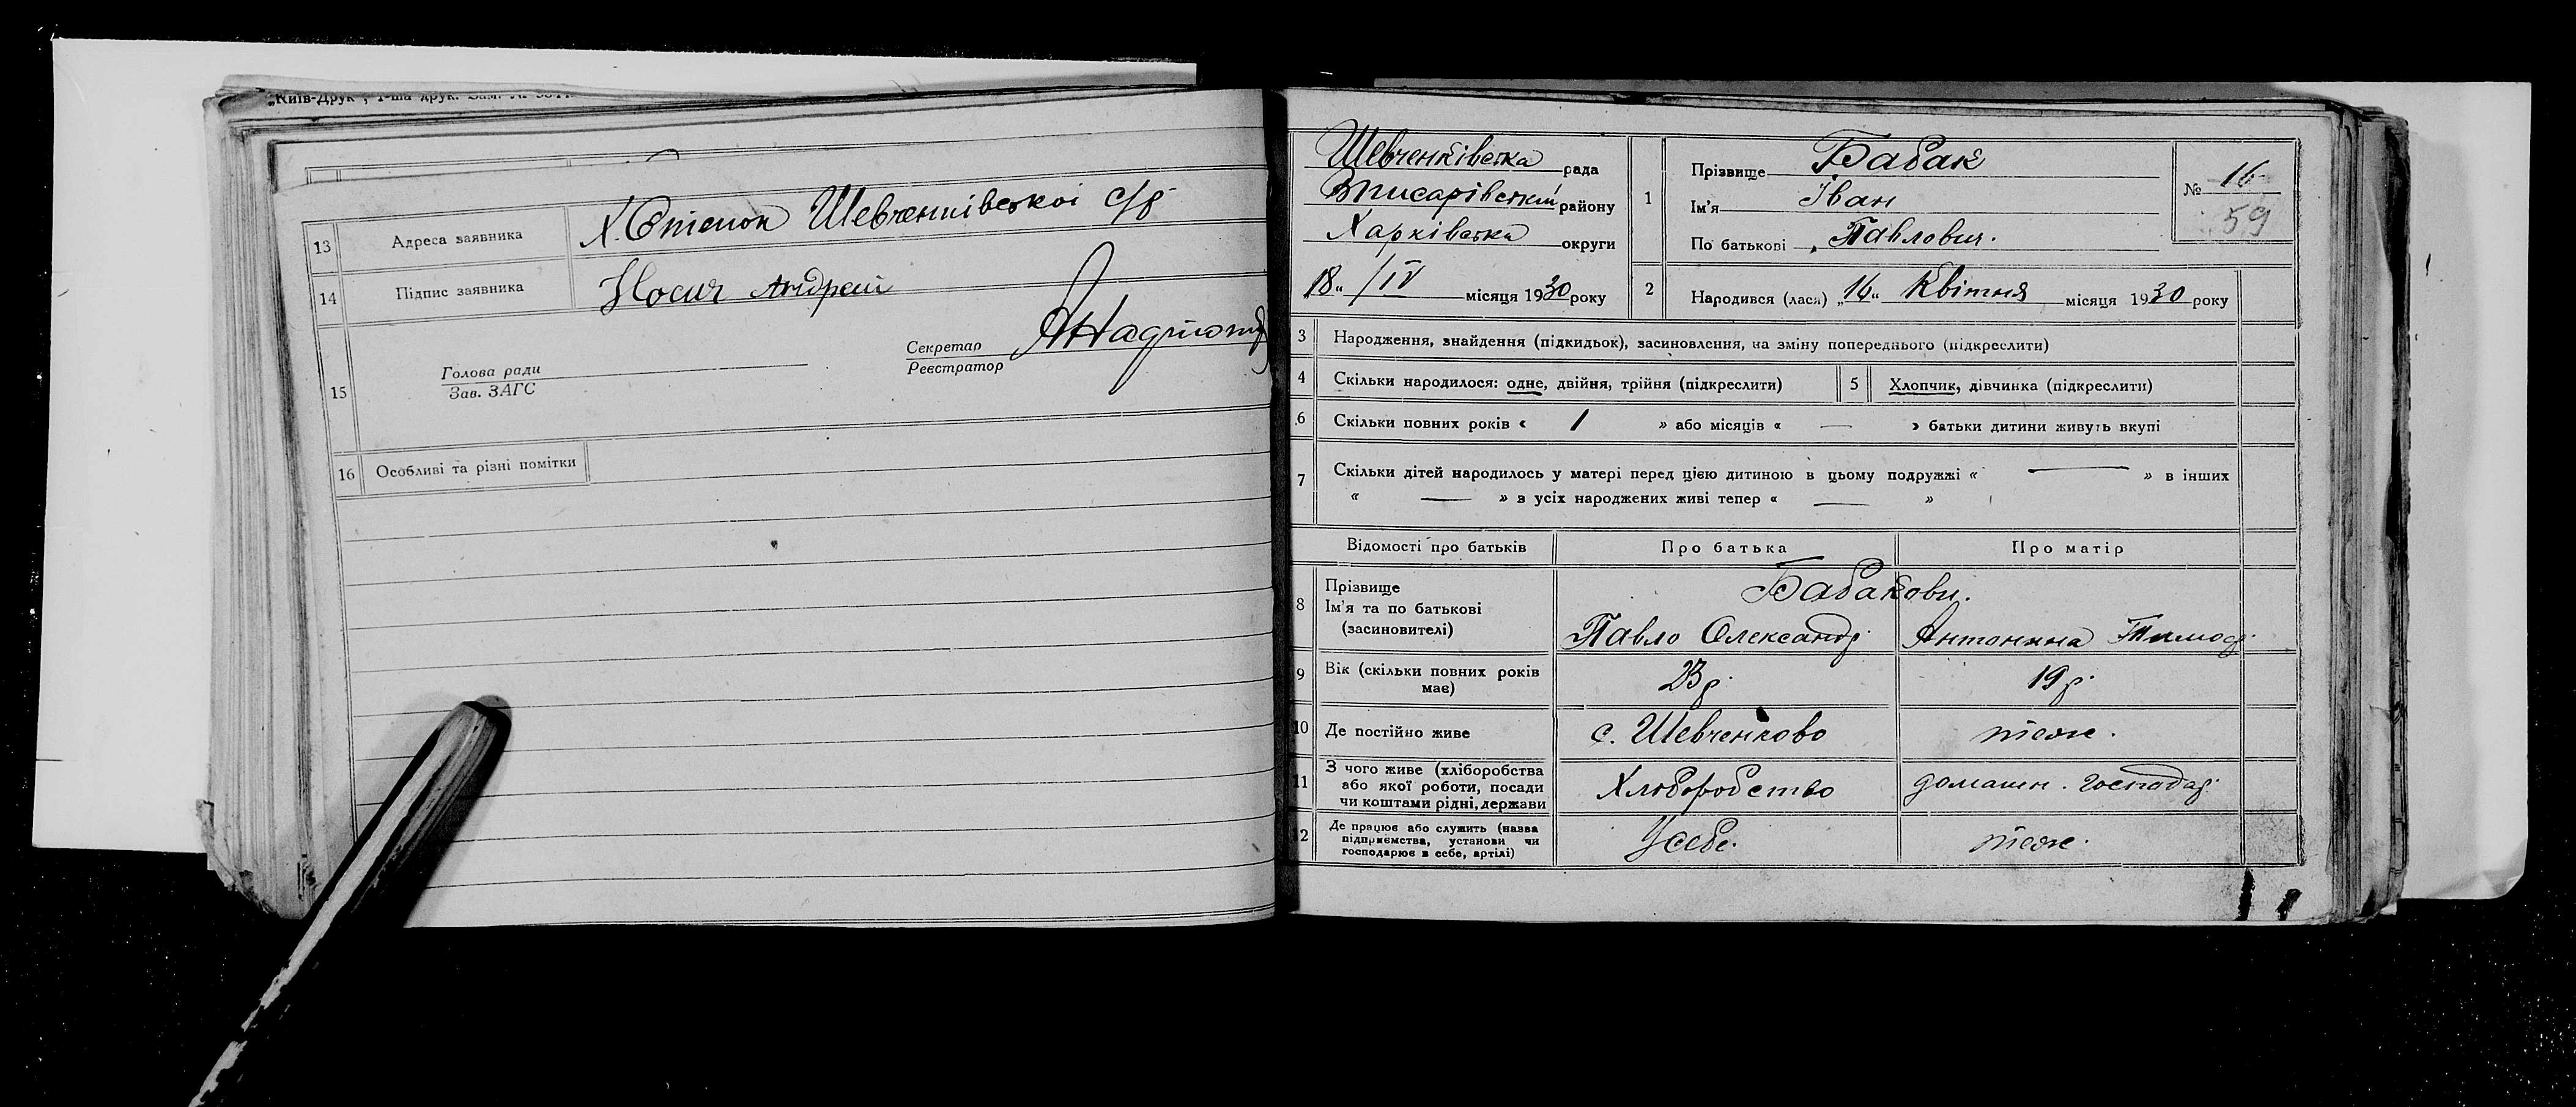 „Київ-Друк", 1-ша друк. Зам. №
13 Адреса заявника Х. Степок Шевченківської с/р
14 Підпис заявника Носич Андрей
15 Голова ради
Зав. ЗАГС
Секретар
Реєстратор
16 Особливі та різні помітки
Шевченківська рада
Вписарівський району
Харківська округи
18 „ / IV місяця 1930 року
1 Прізвище Бабак
Ім'я Іван
По батькові Павлович.
№ 16
59
2 Народився (лася) „16" Квітня місяця 1930 року
3 Народження, знайдення (підкидьок), засиновлення, на зміну попереднього (підкреслити)
4 Скільки народилося: одне, двійня, трійня (підкреслити)
5 Хлопчик, дівчинка (підкреслити)
6 Скільки повних років « 1 » або місяців « — » батьки дитини живуть вкупі
7 Скільки дітей народилось у матері перед цією дитиною в цьому подружжі « — » в інших
« — » з усіх народжених живі тепер « — »
Відомості про батьків Про батька Про матір
8 Прізвище
Ім'я та по батькові
(засиновителі)
Бабакови.
Павло Олександр. Антонина Тимоф.
9 Вік (скільки повних років
має)
23 р. 19 р.
10 Де постійно живе с. Шевченково теж.
11 З чого живе (хліборобства
або якої роботи, посади
чи коштами рідні, держави
Хлоборобство домашн. господар.
12 Де працює або служить (назва
підприємства, установи чи
господарює в себе, артілі)
У себе. теж.